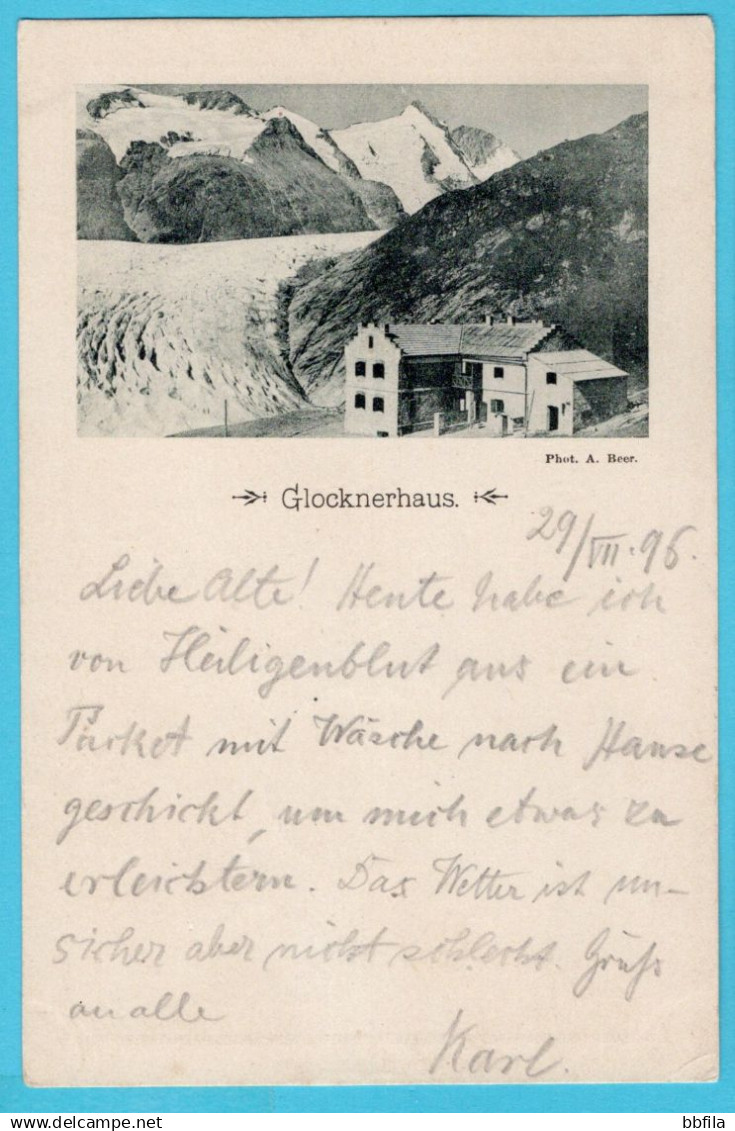 Phot. A. Beer.
Glocknerhaus.
29/VII.96.
Liebe Alte! Heute habe ich
von Heiligenblut aus ein
Packet mit Wäsche nach Hause
geschickt, um mich etwas zu
erleichtern. Das Wetter ist un-
sicher aber nicht schlecht. Gruß
an alle
Karl.
bbfila